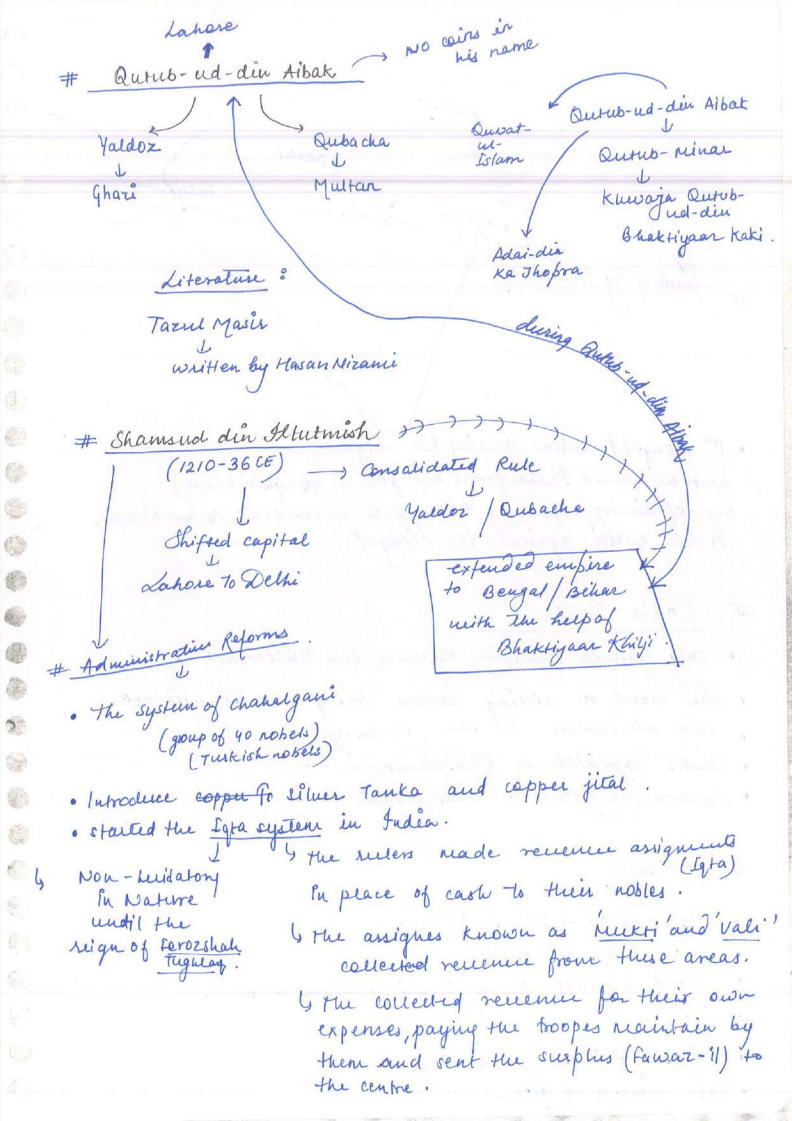 Lahore
NO coins in
his name
# Qutub-ud-din Aibak
Yaldoz
Ghazi
Qubacha
Multan
Quwat-
ul-
Islam
Qutub-ud-din Aibak
Qutub-Minar
Khwaja Qutub-
ud-din
Bhaktiyaar Kaki.
Adai-din
Ka Jhopra
Literature :
Tazul Masir
written by Hasan Nizami
during Qutub-ud-din Aibak
# Shamsud din Iltutmish
(1210-36 CE) → Consolidated Rule
Yaldoz / Qubacha
Shifted capital
Lahore To Delhi
extended empire
to Bengal/Bihar
with the help of
Bhaktiyaar Khilji.
# Administrative Reforms.
• The system of chahalgani
(group of 40 nobels)
(Turkish nobels)
• Introduce silver Tanka and copper jital.
• started the Iqta system in India.
Non-heridatory
in Nature
until the
reign of Ferozshah
Tughlaq.
the rulers made revenue assignments
(Iqta)
in place of cash to their nobles.
the assignes known as 'Mukti' and 'Vali'
collected revenue from these areas.
the collected revenue for their own
expenses, paying the troopes maintain by
them and sent the surplus (Fawaz-il) to
the centre.